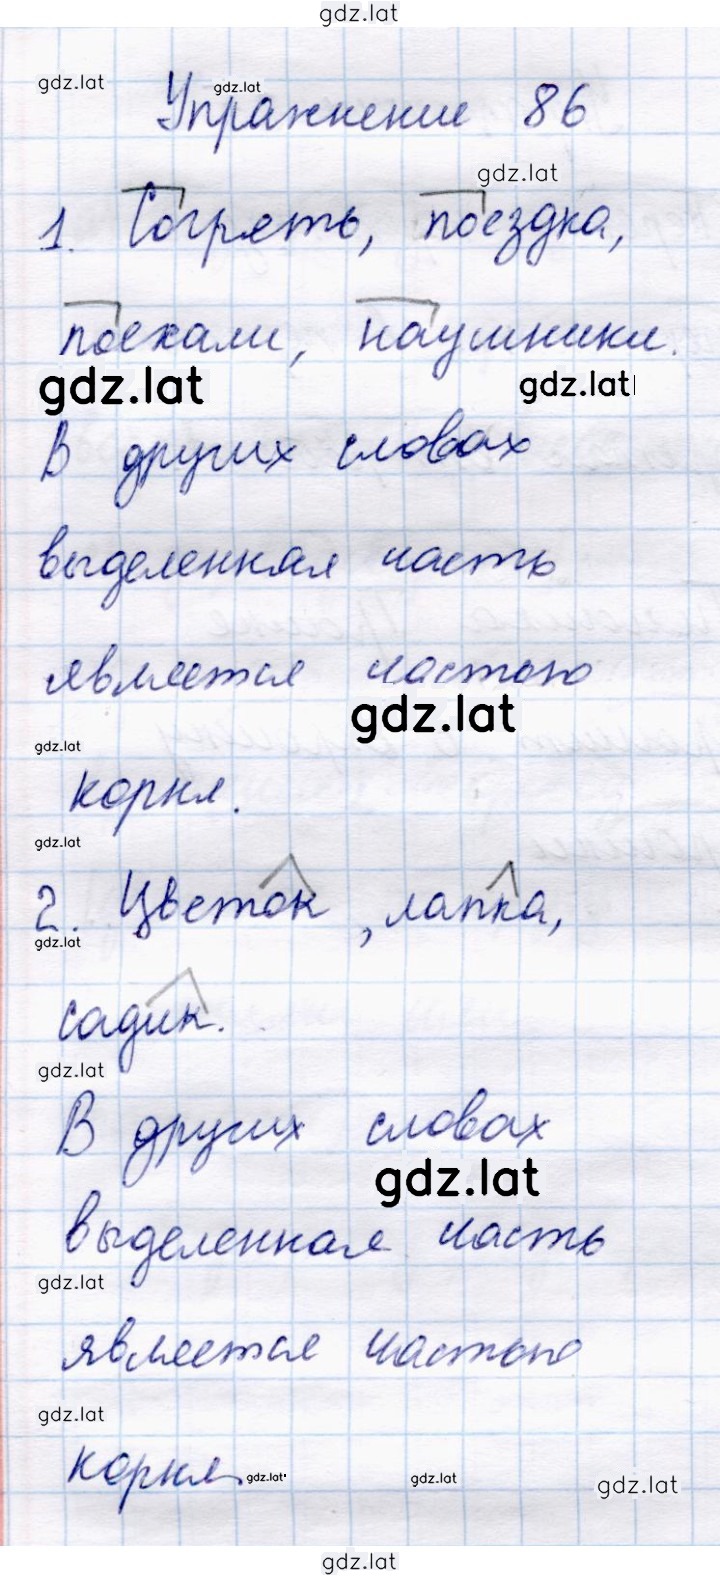 gdz.lat
gdz.lat gdz.lat
Упражнение 86
gdz.lat
1. Согреть, поездка,
поехали, наушники.
gdz.lat gdz.lat
В других словах
выделенная часть
является частью
gdz.lat
gdz.lat
корня.
gdz.lat
2. Цветок, лапка,
gdz.lat
садик.
gdz.lat
В других словах
gdz.lat
выделенная часть
gdz.lat
является частью
gdz.lat
корня gdz.lat gdz.lat gdz.lat
gdz.lat